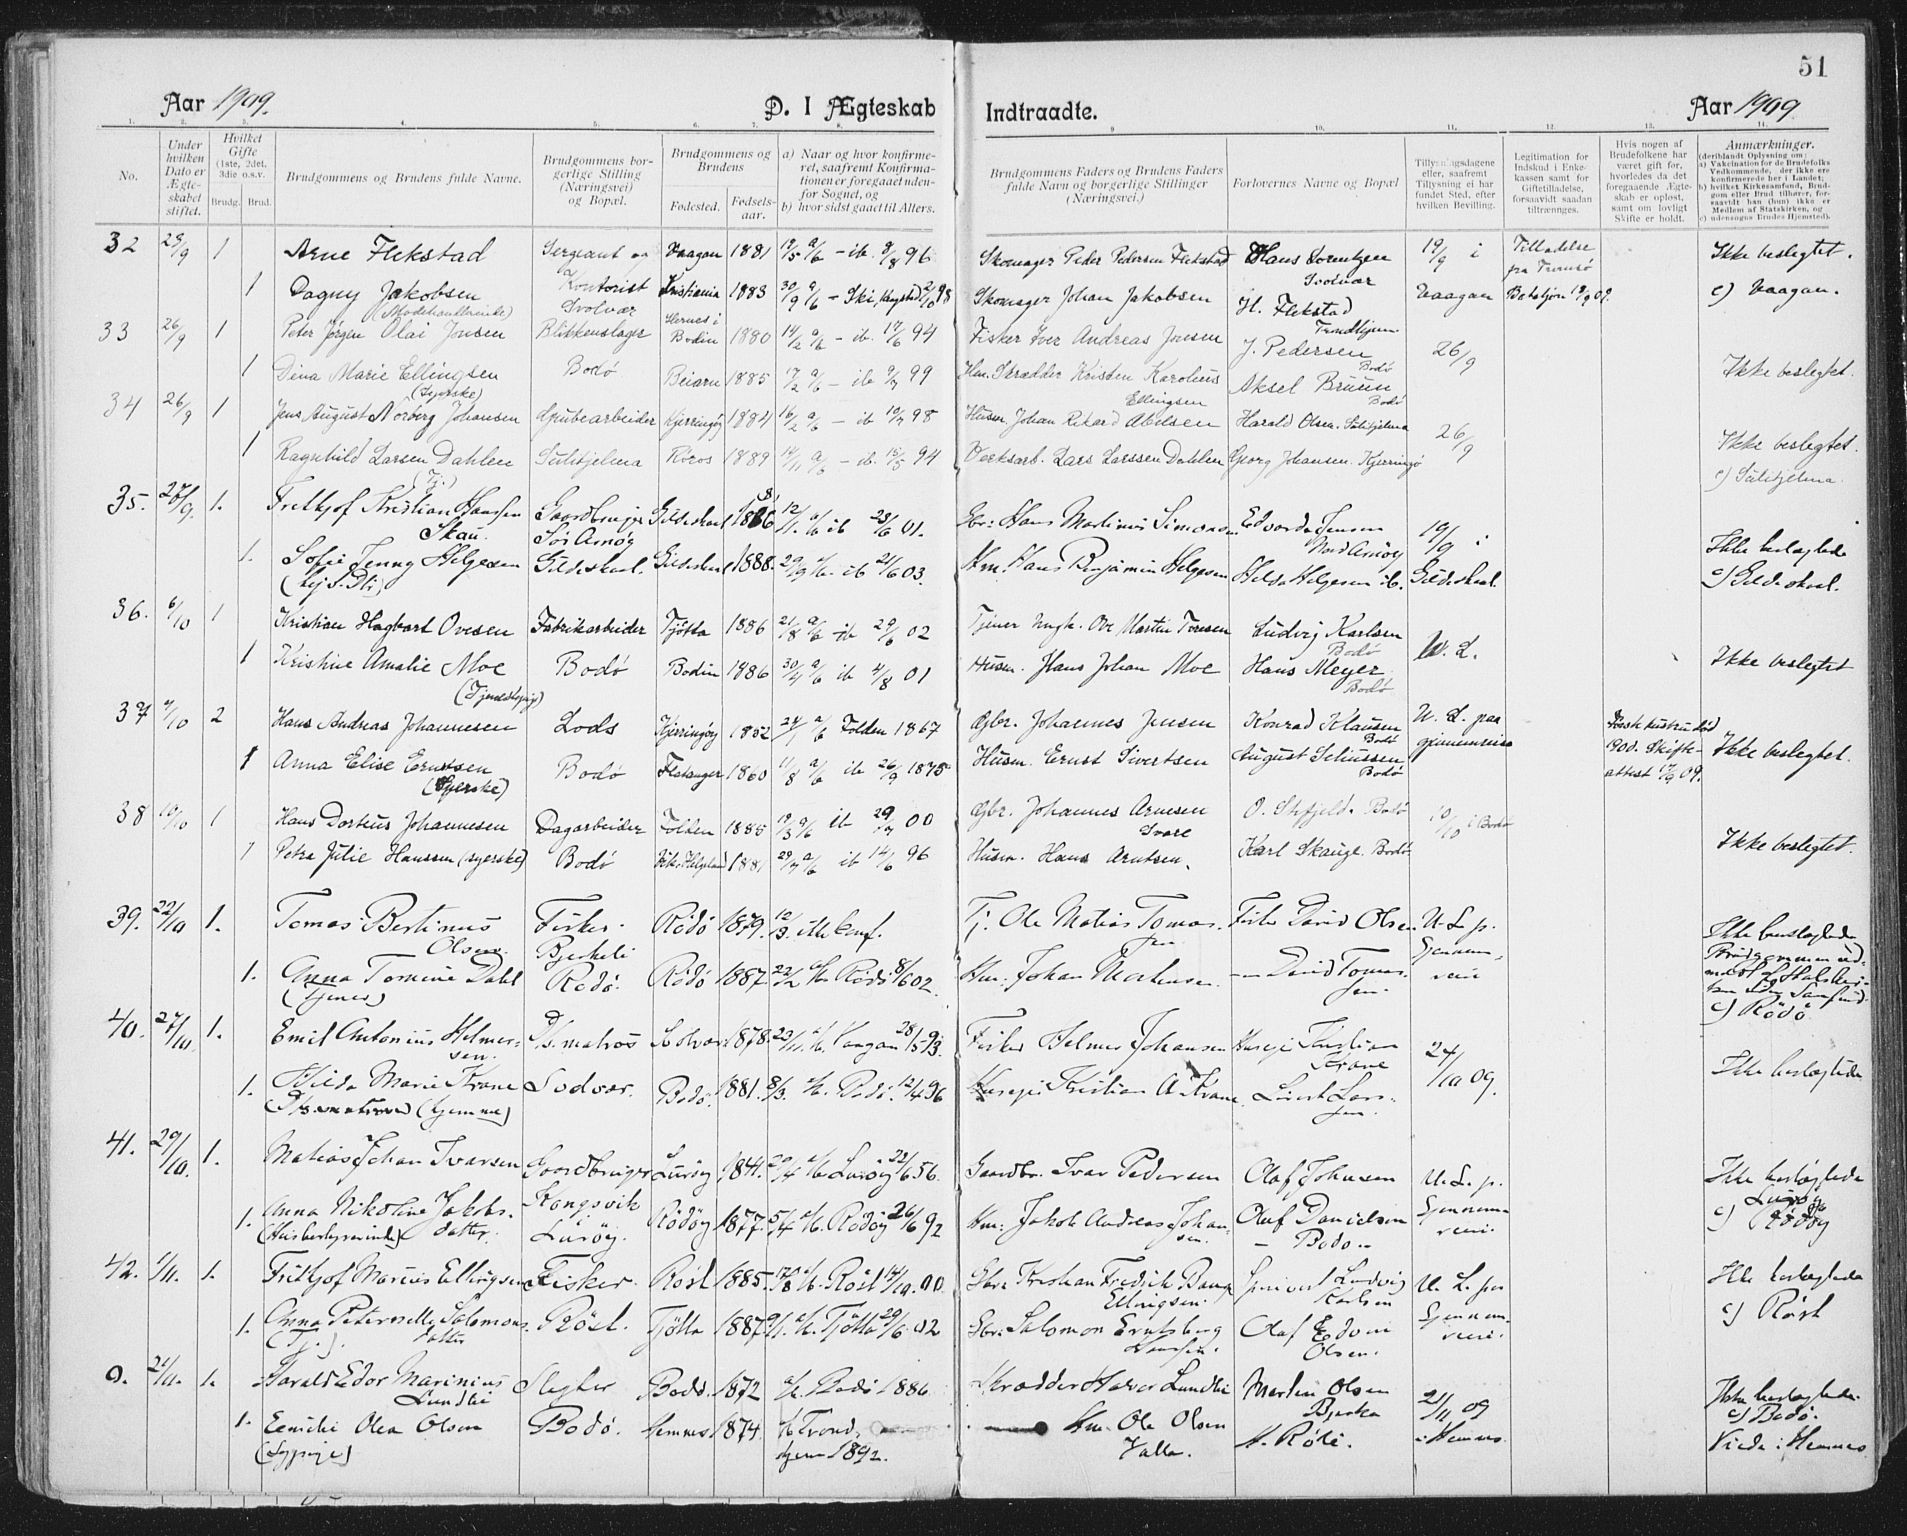 51
Aar 1909.
D. I Ægteskab
Indtraadte.
Aar 1909
1. 2. 3. 4. 5. 6. 7. 8. 9 10. 11. 12. 13. 14.
No.
Under hvilken Dato er Ægteskabet stiftet.
Hvilket Gifte (1ste, 2det, 3die o.s.v.
Brudg. Brud.
Brudgommens og Brudens fulde Navne.
Brudgommens borgerlige Stilling (Næringsvei) og Bopæl.
Brudgommens og Brudens
Fødested. Fødselsaar.
a) Naar og hvor konfirmeret, saafremt Konfirmationen er foregaaet udenfor Sognet, og
b) hvor sidst gaaet til Alters.
Brudgommens Faders og Brudens Faders fulde Navn og borgerlige Stillinger (Næringsvei.)
Forlovernes Navne og Bopæl
Tillysningsdagene eller, saafremt Tillysning ei har fundet Sted, efter hvilken Bevilling.
Legitimation for Indskud i Enkekassen samt for Giftetilladelse, forsaavidt saadan tiltrænges.
Hvis nogen af Brudefolkene har været gift før, hvorledes da det foregaaende Ægteskab er opløst, samt om lovligt Skifte er holdt.
Anmærkninger.
(deriblandt Oplysning om:
a) Vakcination for de Brudefolks Vedkommende, der ikke ere konfirmerede her i Landet;
b) hvilket Kirkesamfund, Brudgom eller Brud tilhører, forsaavidt han (hun) ikke er Medlem af Statskirken, og
c) udensogns Brudes Hjemsted).
32 1 Arne Flekstad Sergeant og Vaagan 1881 - ib. 8/8 96 Skomager Peder Pedersen Flekstad Hans Lorentzen Svolvær 19/9 i Tilladelse fra Tromsø Ikke beslegtet.
1 Dagny Jakobsen Kontorist Svolvær Kristiania 1883 30/9 - Ski, 98 Skomager Johan Jakobsen H. Flekstad Trondhjem Vaagan Bataljon 09. c) Vaagan.
33 26/9 1 Peter Jørgen Olai Jensen Blikkenslager Bodin 1880 14/2 - ib. 94 Fisker Iver Andreas Jensen J. Pedersen Bodø 26/9
1 Dina Marie Ellingsen (Syerske) Bodø Beiarn 1885 17/2 - ib 99 Hm. Skrædder Kristen Karolius Ellingsen Aksel Bruun Bodø Ikke beslegtet.
34 26/9 1 Jens August Norberg Johansen Grubearbeider Kjerringøy 1884 16/2 - ib 98 Husm. Johan Rikard Abelsen Harald Olsen. Sulitjelma 26/9
1 Ragnhild Larsen Dahlen (Tj.) Sulitjelma Røros 1889 14/11 - ib. 15/5 94 Verksarb. Lars Larssen Dahlen Georg Johansen. Kjerringø Ikke beslegtet. c) Sulitjelma.
35. 1. Fritkjof Kristian Hansen Skau. Gaardbruger Sør Arnøy Gildeskaal 1886 12/1. ib 01. Gbr: Hans Martinus Simonsen Edvard Jensen Nord Arnøy 19/9 i
1. Sofie Jenny Helgesen Gildeskaal. Gildeskaal 1888. 29/9 ib 21/6 03. Hm. Hans Benjamin Helgesen Helda Helgesen ib. Gildeskaal. Ikke beslægtede c) Gildeskaal.
36. 6/10 1 Kristian Hagbart Ovesen Fabrikarbeider Tjøtta 1886 21/8 ib 29/6 02 Tjener Ove Martin Ludvig Karlsen Bodø U. L.
1 Kristine Amalie Moe (Tjenestepige) Bodø Bodin 1886 30/4 ib 4/8 01 Husm. Hans Johan Moe Hans Meyer Bodø Ikke beslegtet
37 9/10 2 Hans Andreas Johannesen Lods Kjerringøy 1852 24/1 Folden 1867 Gbr. Johannes Jensen Konrad Klausen Bodø U. L. paa gjennemreise Første hustru død Bod. Skifteattest 09.
1 Anna Elise Erntsen (Syerske) Bodø Flatanger 1860 11/8 ib 26/9 1875 Husm. Ernst Sivertsen August Seliussen Bodø Ikke beslegtet.
38 10/10 1 Hans Dorteus Johannesen Dagarbeider Folden 1885 ib 00 Gbr. Johannes Arnesen Svare O. Bodø 10/10 i Bodø
1 Petra Julie Hanssen (syerske) Bodø 1881 29/7 ib 14/6 96 Husm. Hans Arntsen. Karl Skaugl. Bodø Ikke beslegtet.
39. 22/10 1. Tomas Bertinus Olsen. Fisker. Rødø 1879. 12/3. Tj. Ole Matias Tomassen Fisker David Olsen U. L. p. Ikke beslægtede
1. Anna Tomine Dahl (Tjener) Rødø. Rødø 1887 22/2 Rødø 8/6 02. Hm. Johan Mortensen. David Tomassen. Gjennemreise Brudgommen udmeldt af Statskirken c) Rødø
40. 27/10. 1. Emil Antonius Helmersen. matros Solvær 1878. 22/11. Vaagan 28/5 93. Fisker Helmer Johansen Huseier Kristian Krane 24/10 09.
1. Hilda Marie Krane (hjemme) Svolvær. Bodø. 1881. 8/3. Bodø. 12/4 96 Huseier Kristian A. Krane. Larsen. Ikke beslægtede
41. 29/10. 1. Matias Johan Ivarsen Gaardbruger Kongsvik i Lurøy. Lurøy 1841. Lurøy 22/6 56. Gaardbr. Ivar Pedersen Olaf Johnsen U. L. p. Ikke beslægtede
1. Anna Nikoline Jakobsdatter. (Husbestyrerinde) Rødøy 1877. 5/4 Rødøy 26/6 92 Hm: Jakob Andreas Johansen. Olaf Danielsen Bodø.. Gjennemreise. c) Rødøy
42. 1/11. 1. Fritkjof Marius Ellingsen Fisker. Røst 1885. Røst 14/10. 00. Gbr. Kristian Fredrik Bang Ellingsen. Ludvig Karlsen U. L. paa Ikke beslægtede c) Røst
1. Anna Peternelle Salomonsdatter (Tj.). Røst. Tjøtta 1887. Tjøtta 29/6. 02 Gbr. Salomon Erntsberg Hanssen. Olaf Edvin Olsen. Gjennemreise.
0. 21/11. 1. Harald Edor Marinius Lundli Slagter Bodø. 1872 Bodø 1886. Skrædder Halvor Lundli Martin Olsen Bjerka 21/11 09 Ikke beslægtede. c) Bodø.
1. Emilie Olea Olsen (Sypige) Bodø. Hemnes 1874. Trondhjem 1892. Hm. Ole Olsen Valla. A. Røli. i Hemnes. Viede i Hemnes